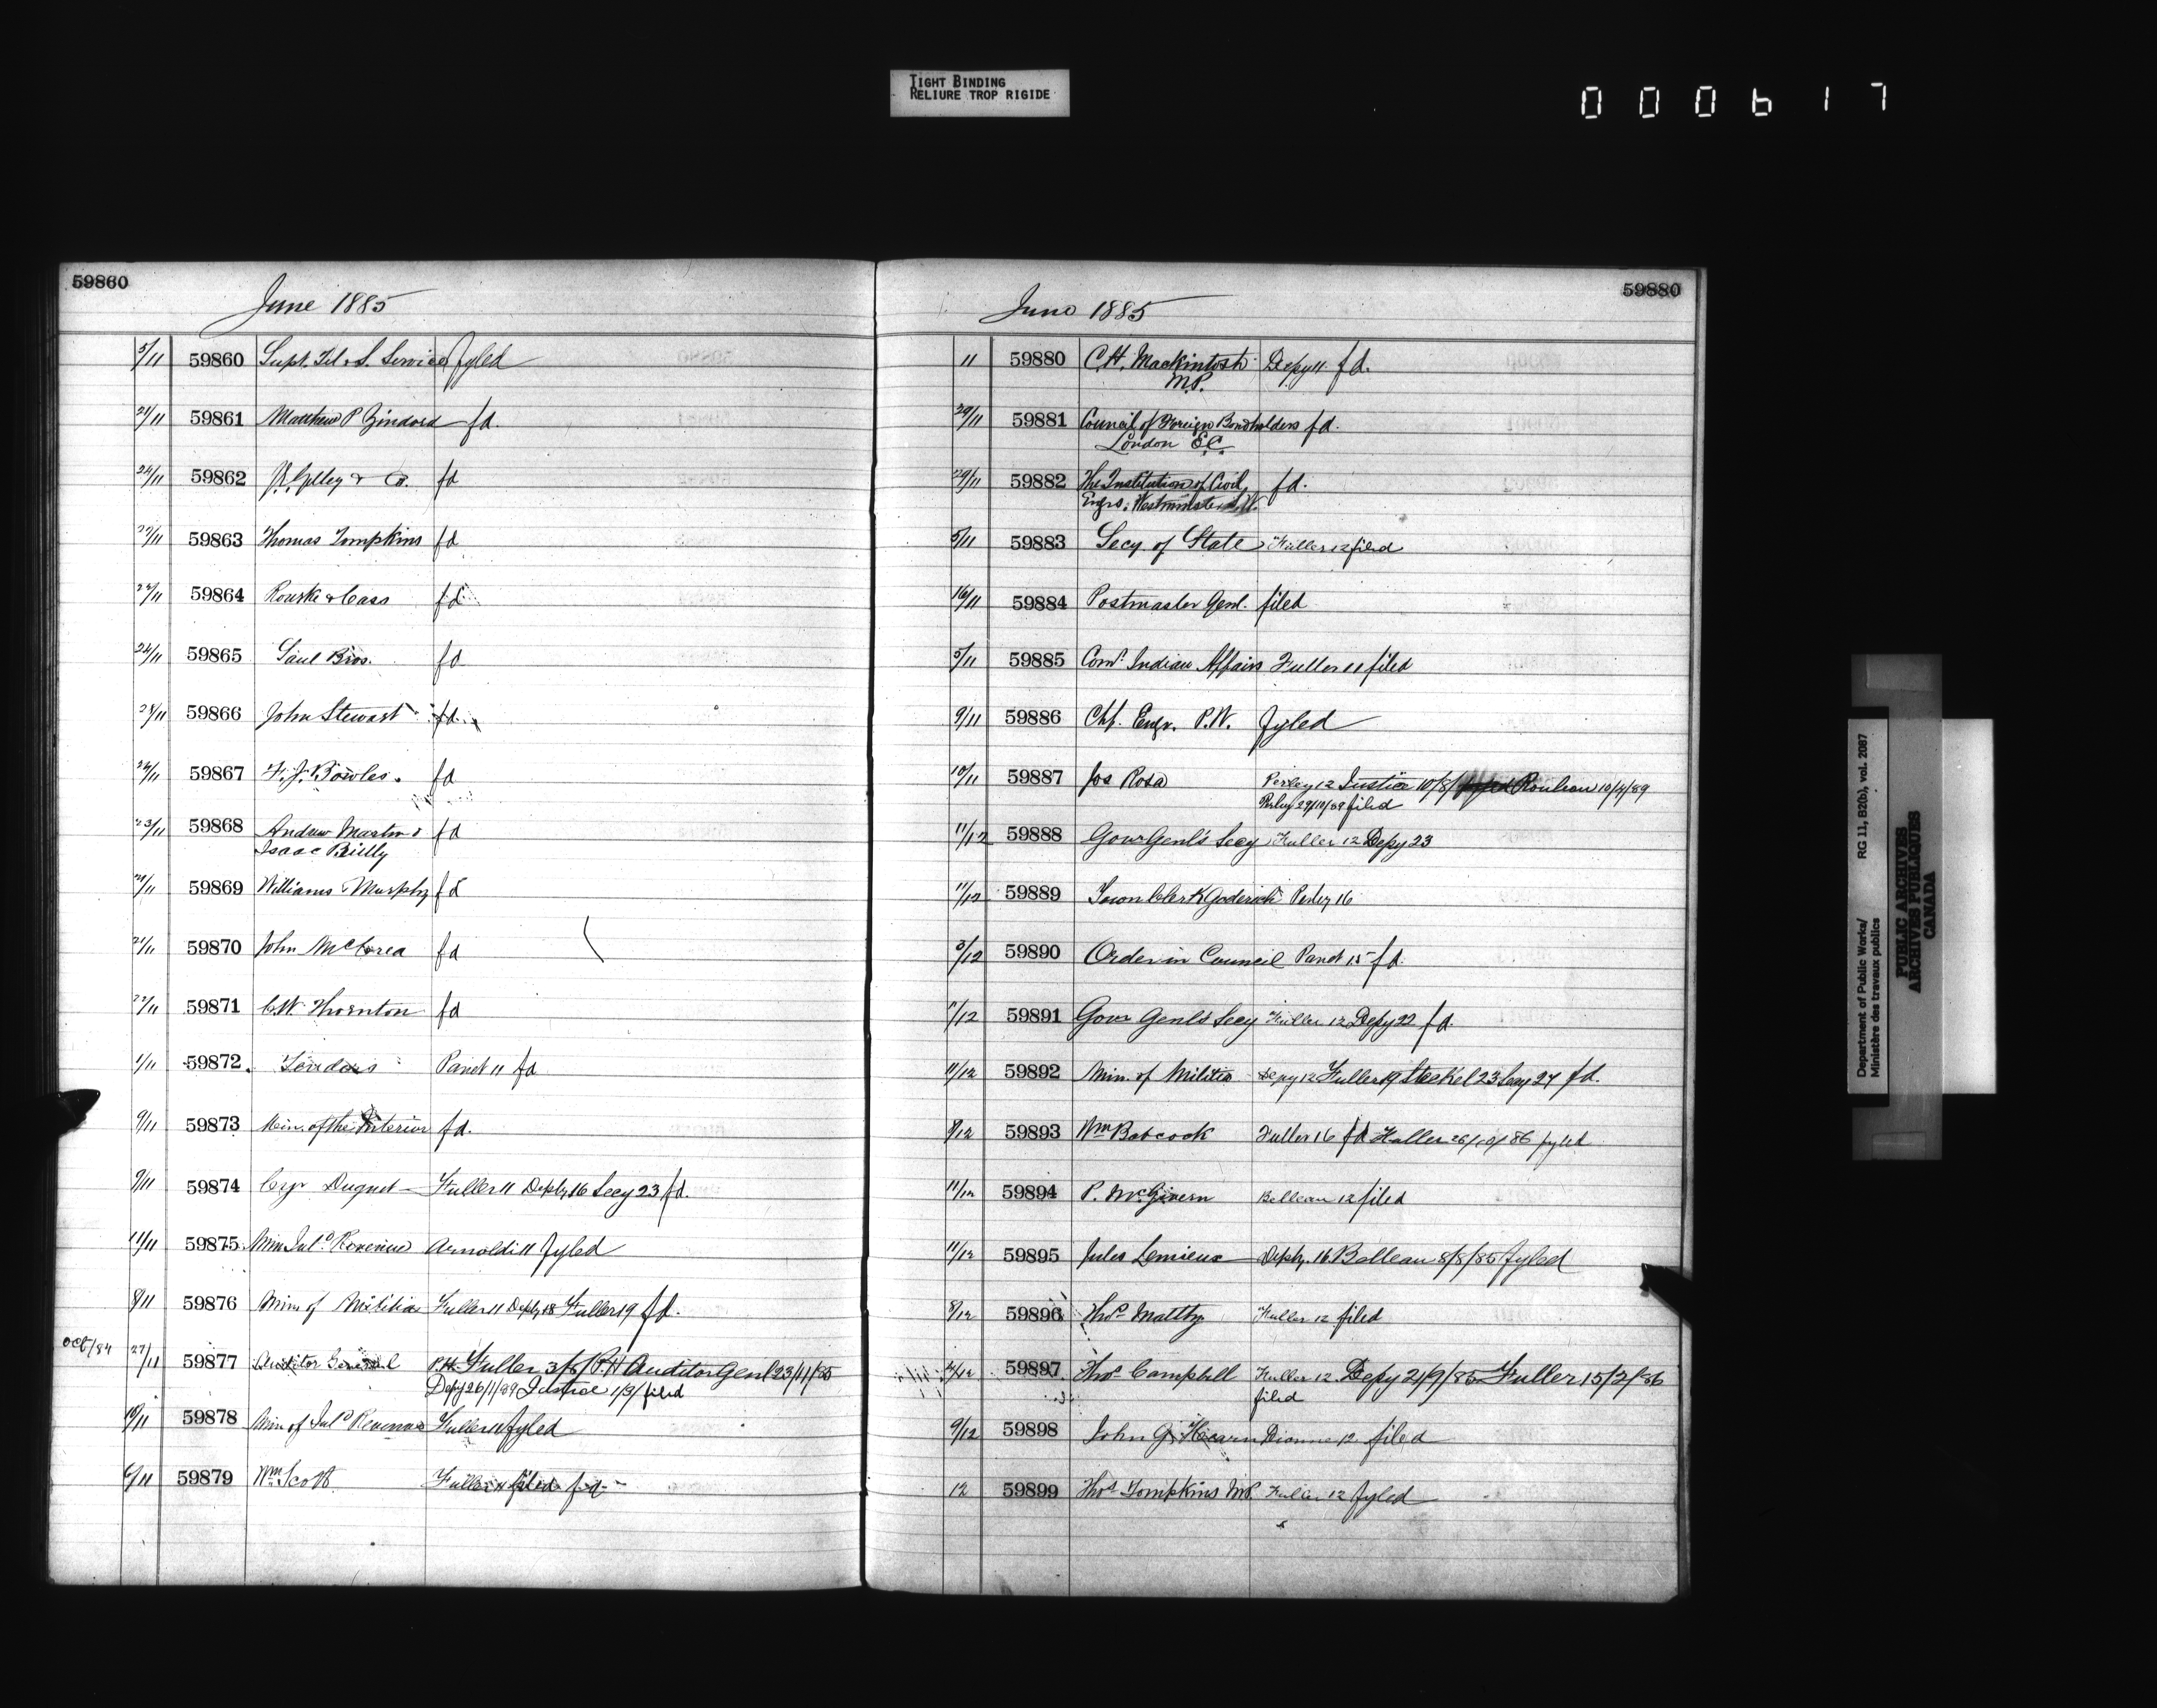 TIGHT BINDING
RELIURE TROP RIGIDE
000617
59860
June 1885
5/11 59860 Supt. Tel. & S. Service fyled
21/11 59861 Matthew P fd.
24/11 59862 & Co. fd
59863 Thomas Tompkins fd
59864 Rourke & Cass fd
24/11 59865 Saul Bros. fd
24/11 59866 John Stewart fd.
24/11 59867 F. J. Bowles. fd
23/11 59868 Andrew Master & fd
Isaac Reilly
59869 Williams Murphy fd
59870 John McCrea fd
59871 C.W. Thornton fd
1/11 59872. Tenders Panet 11 fd
9/11 59873 Min. of the Interior fd.
9/11 59874 Duquet Fuller 11 Depty 16 Secy 23 fd.
11/11 59875 Min Inld Revenue Arnoldi 11 fyled
8/11 59876 Min of Militia Fuller 11 Depty 18 Fuller 19 fd.
Oct/84 27/11 59877 Auditor General P.H. Fuller 3/8/ P.H Auditor Genl 23/11/85
Depy 26/1/89 Justice 1/3/ filed
10/11 59878 Min of Inld Revenue Fuller 11 fyled
6/11 59879 Wm Scott Fuller 11 filed fd
59880
June 1885
11 59880 C.H. Mackintosh Depy 11. fd.
M.P.
29/11 59881 Council of Foreign Bondholders fd.
London E.C.
29/11 59882 The Institution of Civil fd.
Engrs. Westminster S.W.
5/11 59883 Secy. of State Fuller 12 filed
16/11 59884 Postmaster Genl. filed
5/11 59885 Comr Indian Affairs Fuller 11 filed
9/11 59886 Chf. Engr. P.W. fyled
10/11 59887 Jos Rosa Perley 12 Justice 10/8/ Rouleau 10/4/89
Perley 29/10/89 filed
11/12 59888 Govr Genl's Secy Fuller 12 Depy 23
11/12 59889 Town Clerk Goderich Perley 16
3/12 59890 Order in Council Panet 15 fd.
59891 Govr Genl's Secy Fuller 12 Depy 22 fd.
11/12 59892 Min. of Militia Depy 12 Fuller 19 Steckel 23 Secy 27 fd.
9/12 59893 Wm Babcock Fuller 16 fd Fuller 26/10/86 fyled
11/12 59894 P. McGivern Belleau 12 filed
11/12 59895 Jules Lemieux Depty. 16 Belleau 8/8/85 fyled
8/12 59896 Thos Maltby Fuller 12 filed
59897 Thos Campbell Fuller 12 Depy 21/9/85 Fuller 15/2/86
filed
9/12 59898 John G. Hearn Dionne 12. filed
12 59899 Thos Tompkins M.P. Fuller 12 fyled
Department of Public Works/ RG 11, B2(b), vol. 2087
Ministère des travaux publics
PUBLIC ARCHIVES
ARCHIVES PUBLIQUES
CANADA